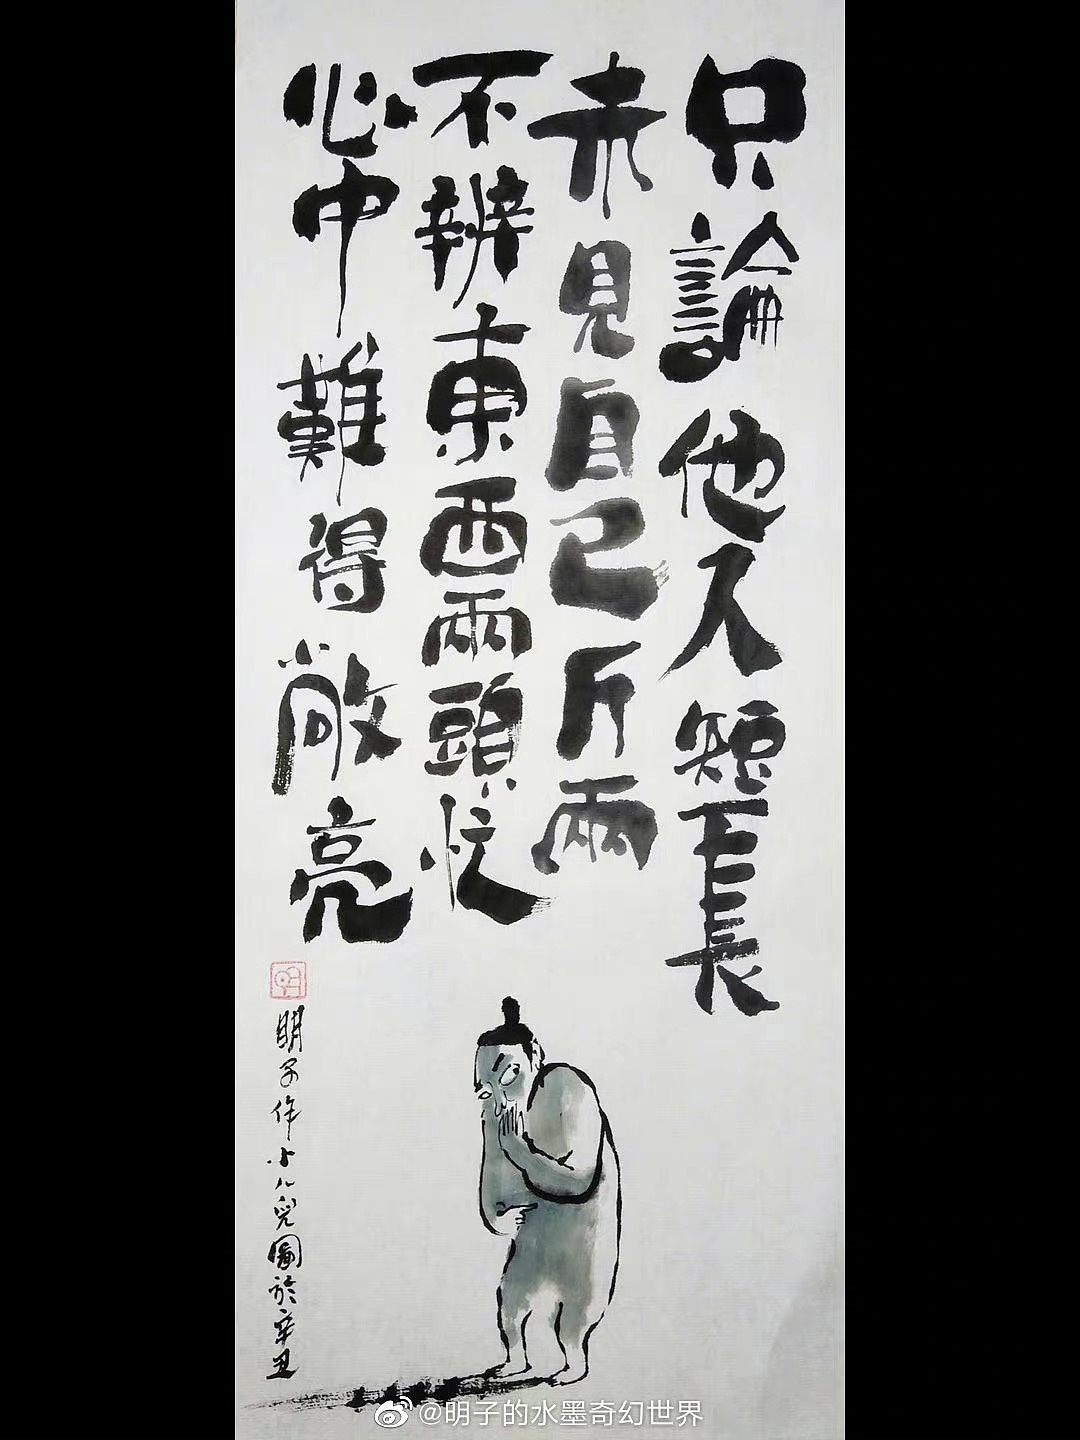 只論他人短長
未見自己斤兩
不辨東西兩頭忙
心中難得敞亮
明子作小八兒圖於辛丑
@明子的水墨奇幻世界